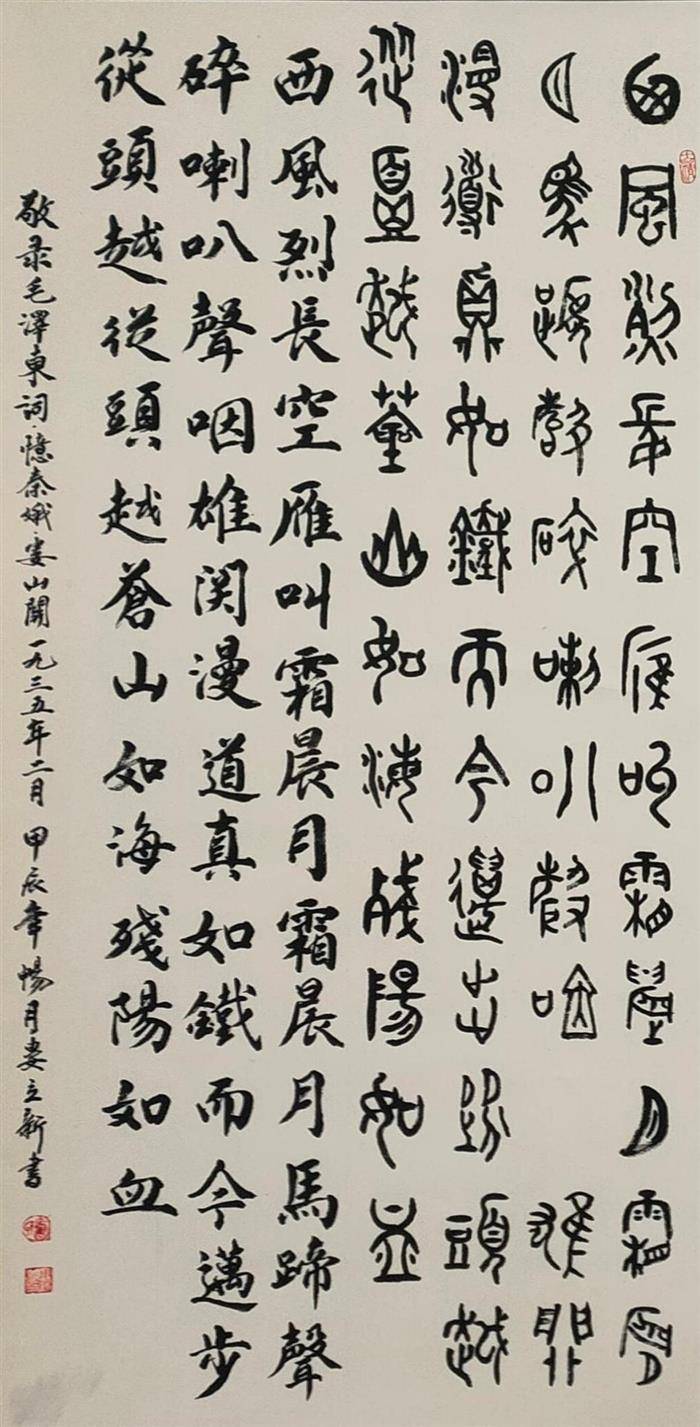 西風烈長空雁叫霜晨月霜晨
月馬蹄聲碎喇叭聲咽 雄關
漫道真如鐵而今邁步從頭越
從頭越蒼山如海殘陽如血
西風烈長空雁叫霜晨月霜晨月馬蹄聲
碎喇叭聲咽雄関漫道真如鐵而今邁步
從頭越從頭越蒼山如海殘陽如血
敬录毛澤東詞·憶秦娥·娄山関一九三五年二月 甲辰年暢月娄立新書